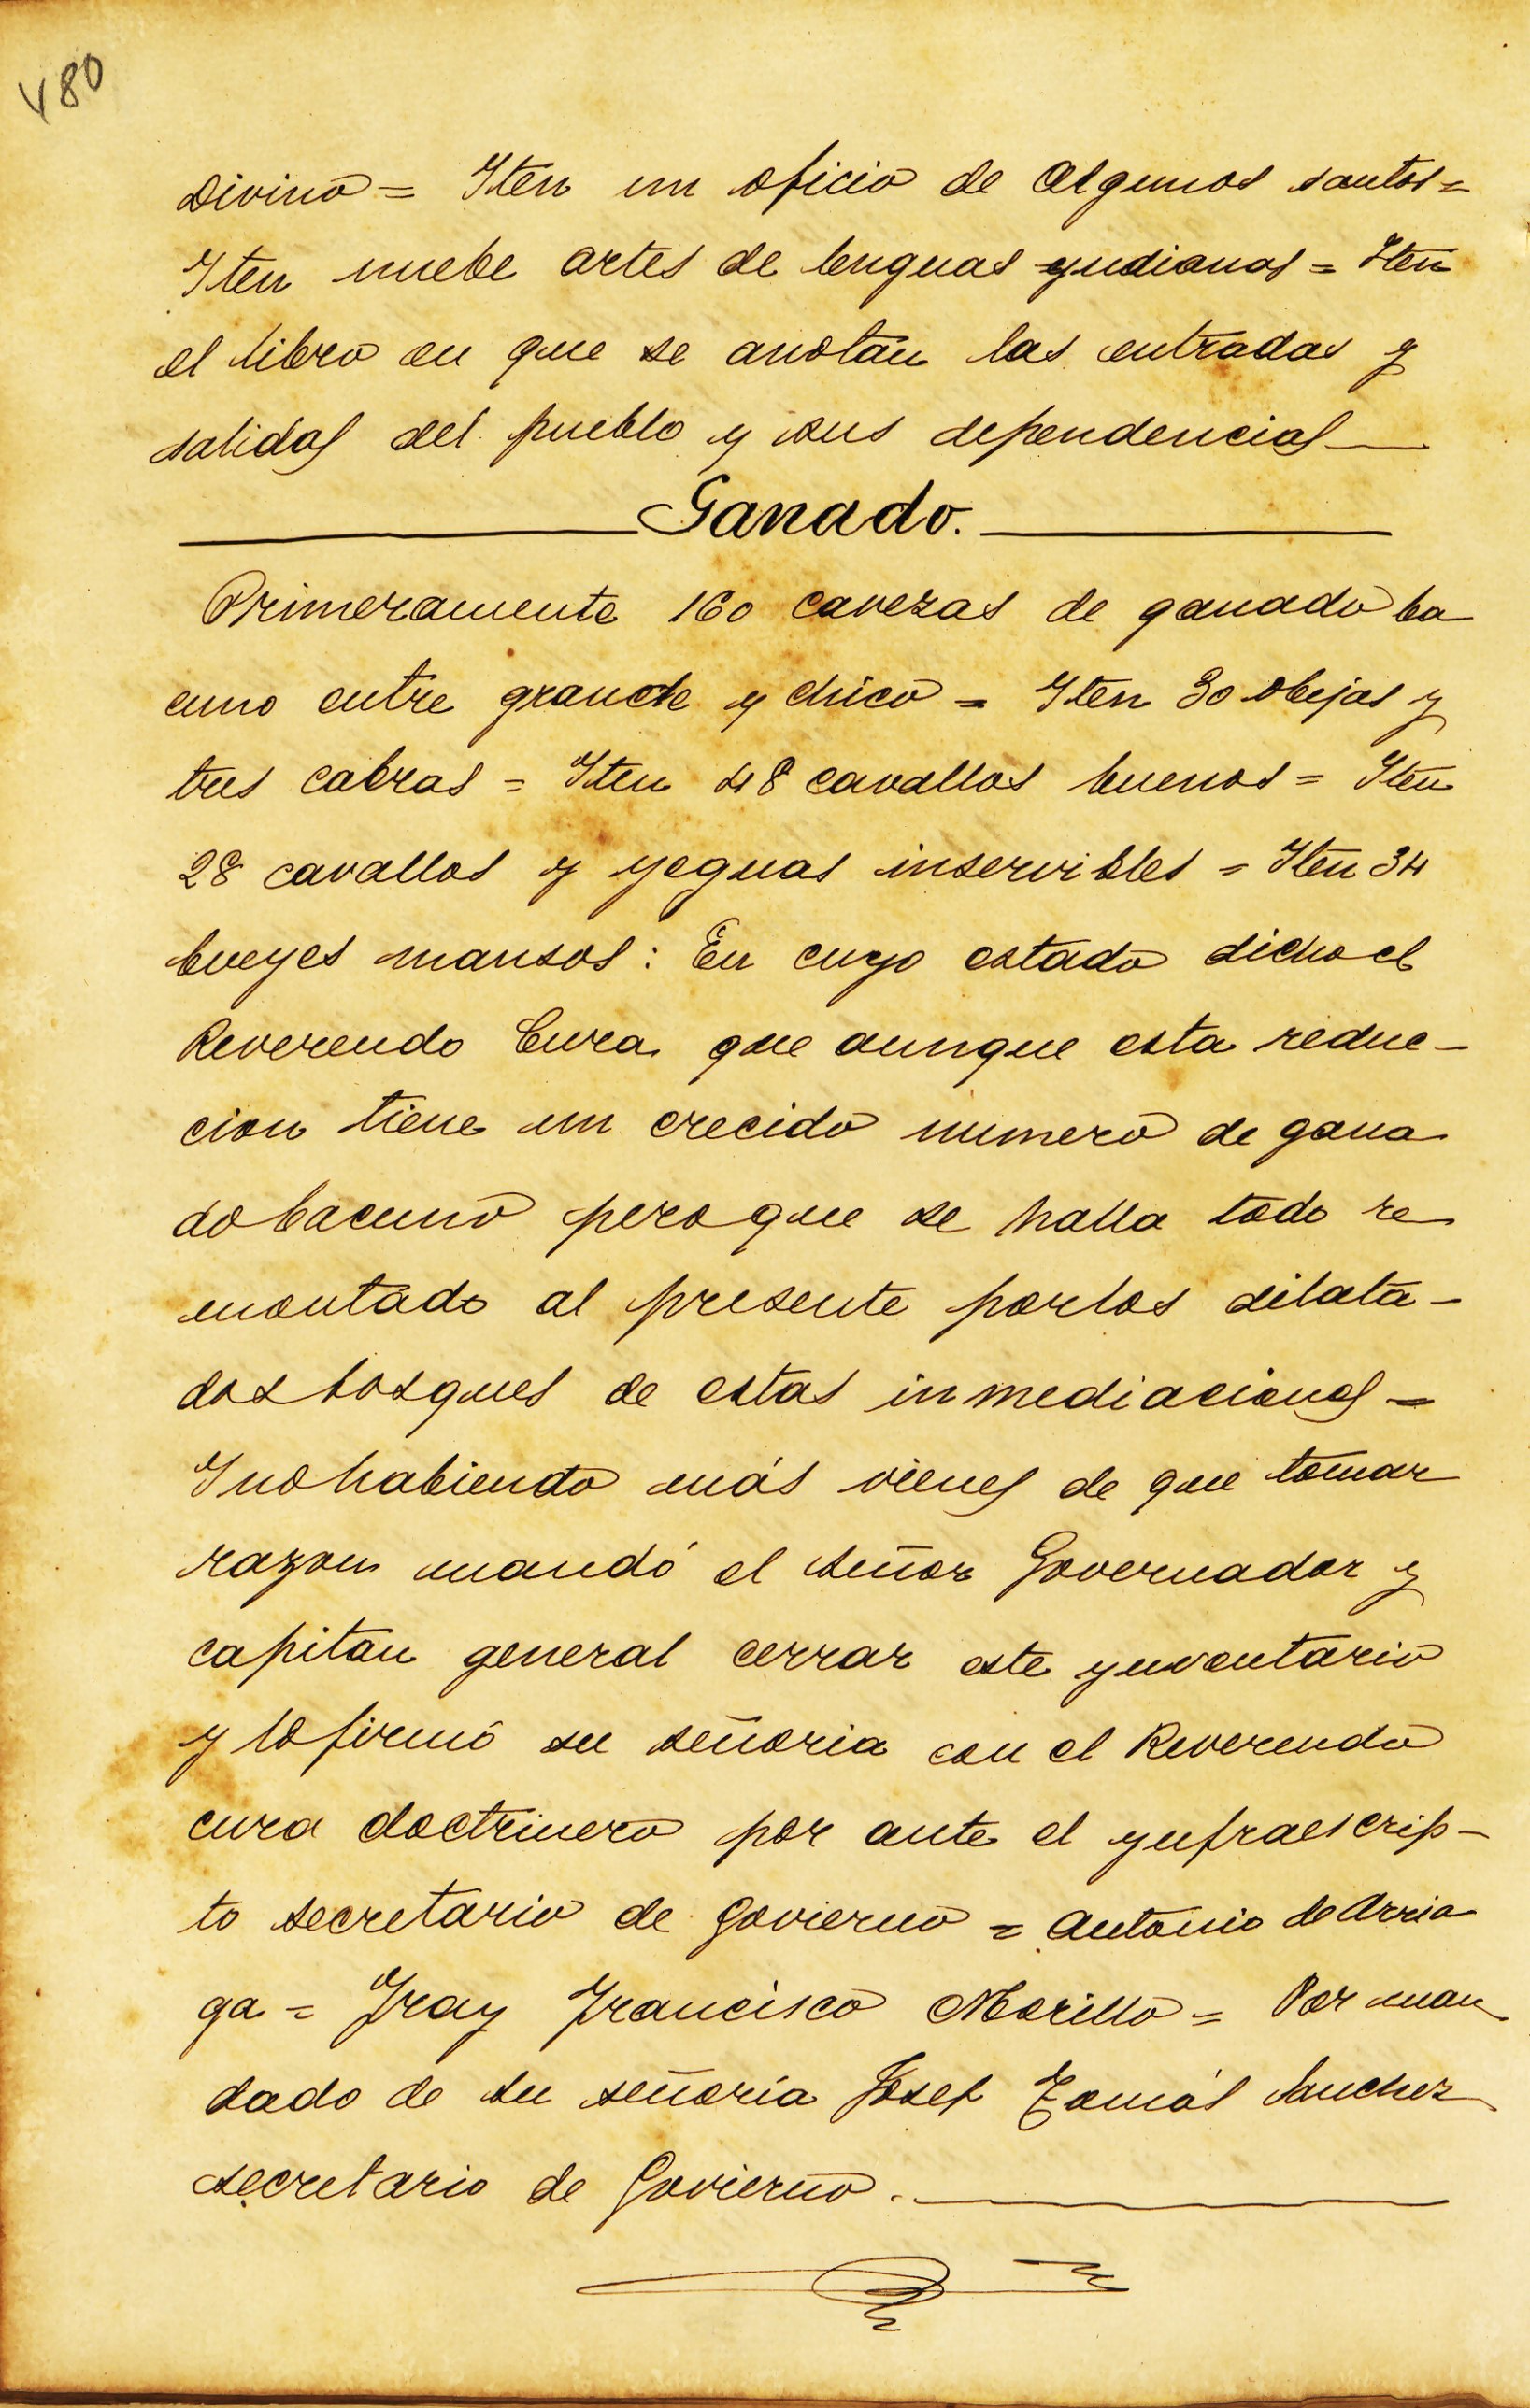 480
Divino = Iten un oficio de Algunos santos =
Iten nuebe artes de lenguas yndianas = Iten
el libro en que se anotan las entradas y
salidas del pueblo y sus dependencias —
Ganado.
Primeramente 160 cavezas de ganado ba
cuno entre grande y chico = Iten 30 obejas y
tres cabras = Iten 48 cavallos buenos = Iten
28 cavallos y yeguas inservibles = Iten 34
bueyes mansos: En cuyo estado dicho el
Reverendo Cura que aunque esta reduc-
cion tiene un crecido numero de gana
do bacuno pero que se halla todo re
montado al presente por los dilata-
dos bosques de estas inmediaciones =
Y no habiendo más vienes de que tomar
razon mandó el señor Governador y
capitan general cerrar este ynventario
y lo firmó su señoria con el Reverendo
cura doctrinero por ante el ynfraescrip-
to secretario de Govierno = Antonio de Arria
ga = Fray Francisco Morillo = Por man
dado de su señoría Josef Tomás Sanchez
secretario de Govierno. —